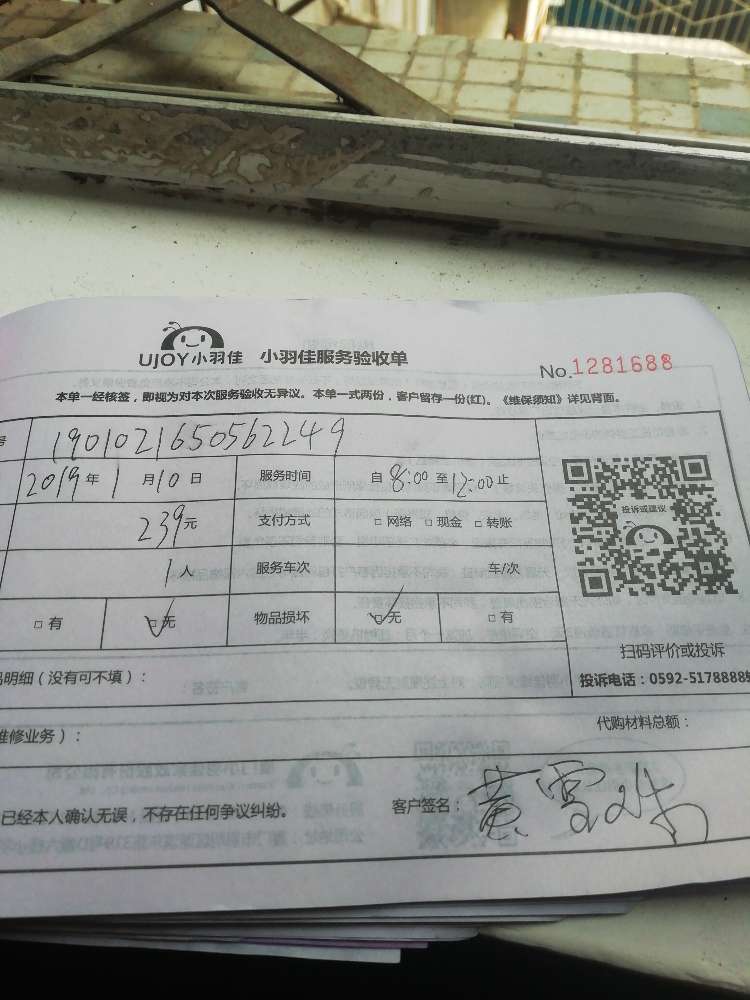 UJOY小羽佳 小羽佳服务验收单
No.1281688
本单一经核签，即视为对本次服务验收无异议。本单一式两份，客户留存一份(红)。《维保须知》详见背面。
号 1901021650562249
2019年1月10日 服务时间 自8:00至12:00止
投诉或建议
239元 支付方式 □网络 □现金 □转账
1人 服务车次 车/次
□有 □无 物品损坏 □无 □有
扫码评价或投诉
明细（没有可不填）：
投诉电话：0592-5178888
代购材料总额：
维修业务）：
已经本人确认无误，不存在任何争议纠纷。 客户签名：黄雪